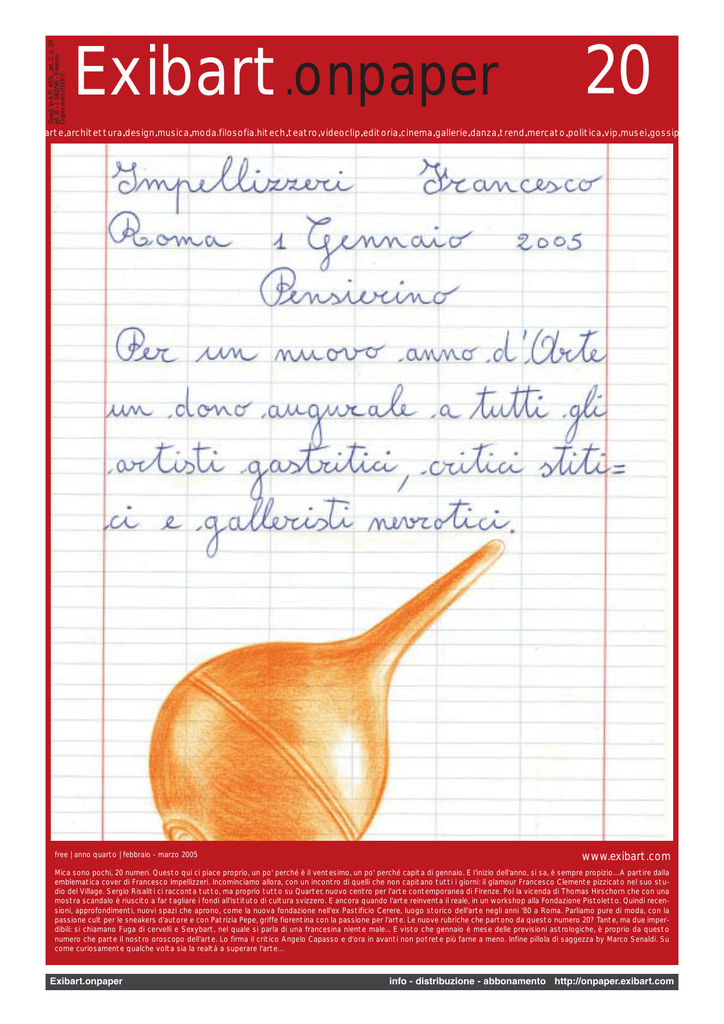 Exibart .onpaper 20
arte,architettura,design,musica,moda.filosofia.hitech,teatro,videoclip,editoria,cinema,gallerie,danza,trend,mercato,politica,vip,musei,gossip
Impellizzeri Francesco
Roma 1 Gennaio 2005
Pensierino
Per un nuovo anno d'Arte
un dono augurale a tutti gli
artisti gastritici, critici stiti=
ci e galleristi nevrotici.
free | anno quarto | febbraio - marzo 2005
www.exibart.com
Mica sono pochi, 20 numeri. Questo qui ci piace proprio, un po' perché è il ventesimo, un po' perché capita di gennaio. E l'inizio dell'anno, si sa, è sempre propizio...A partire dalla
emblematica cover di Francesco Impellizeri. Incominciamo allora, con un incontro di quelli che non capitano tutti i giorni: il glamour Francesco Clemente pizzicato nel suo stu-
dio del Village. Sergio Risaliti ci racconta tutto, ma proprio tutto su Quarter, nuovo centro per l'arte contemporanea di Firenze. Poi la vicenda di Thomas Hirschorn che con una
mostra scandalo è riuscito a far tagliare i fondi all'istituto di cultura svizzero. E ancora quando l'arte reinventa il reale, in un workshop alla Fondazione Pistoletto. Quindi recen-
sioni, approfondimenti, nuovi spazi che aprono, come la nuova fondazione nell'ex Pastificio Cerere, luogo storico dell'arte negli anni '80 a Roma. Parliamo pure di moda, con la
passione cult per le sneakers d'autore e con Patrizia Pepe, griffe fiorentina con la passione per l'arte. Le nuove rubriche che partono da questo numero 20? Tante, ma due imper-
dibili: si chiamano Fuga di cervelli e Sexybart, nel quale si parla di una francesina niente male... E visto che gennaio è mese delle previsioni astrologiche, è proprio da questo
numero che parte il nostro oroscopo dell'arte. Lo firma il critico Angelo Capasso e d'ora in avanti non potrete più farne a meno. Infine pillola di saggezza by Marco Senaldi. Su
come curiosamente qualche volta sia la realtà a superare l'arte...
Exibart.onpaper
info - distribuzione - abbonamento http://onpaper.exibart.com